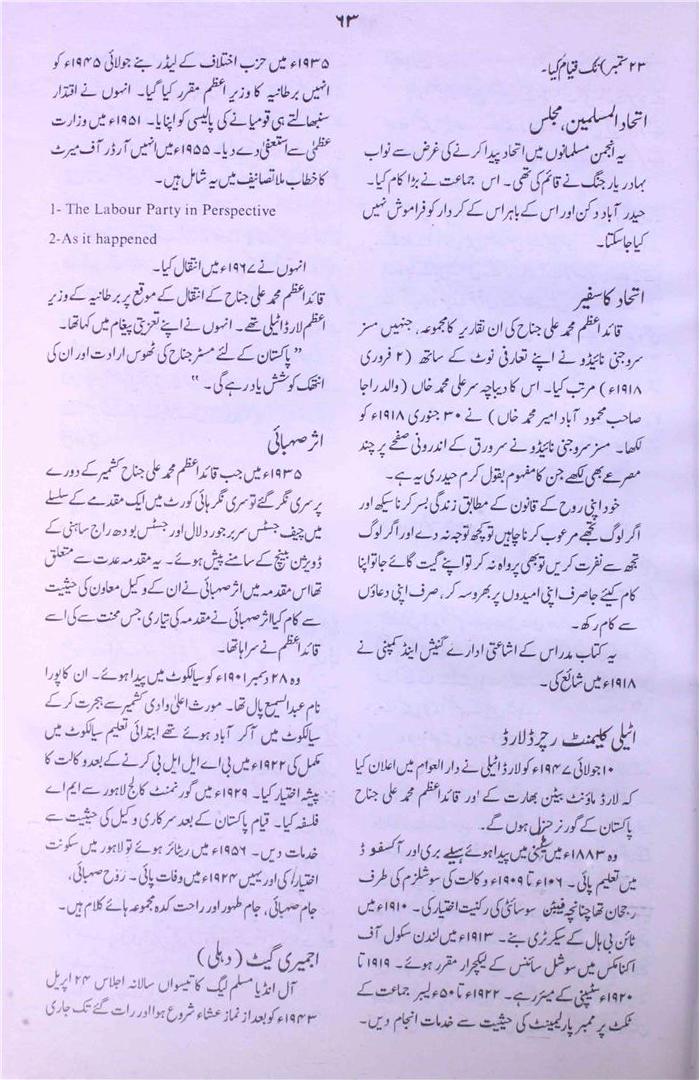 ۶۳
۲۳ ستمبر) تک قیام کیا۔
اتحاد المسلمین، مجلس
یہ انجمن مسلمانوں میں اتحاد پیدا کرنے کی غرض سے نواب
بہادر یار جنگ نے قائم کی تھی۔ اس جماعت نے بڑا کام کیا۔
حیدر آباد دکن اور اس کے باہر اس کے کردار کو فراموش نہیں
کیا جا سکتا۔
اتحاد کا سفیر
قائد اعظم محمد علی جناح کی ان تقاریر کا مجموعہ، جنہیں مسز
سروجنی نائیڈو نے اپنے تعارفی نوٹ کے ساتھ (۲ فروری
۱۹۱۸ء) مرتب کیا۔ اس کا دیباچہ سر علی محمد خاں (والد راجا
صاحب محمود آباد امیر محمد خاں) نے ۳۰ جنوری ۱۹۱۸ء کو
لکھا۔ مسز سروجنی نائیڈو نے سرورق کے اندرونی صفحے پر چند
مصرعے بھی لکھے جن کا مفہوم بقول کرم حیدری یہ ہے۔
خود اپنی روح کے قانون کے مطابق زندگی بسر کرنا سیکھ اور
اگر لوگ تجھے مرعوب کرنا چاہیں تو کچھ توجہ نہ دے اور اگر لوگ
تجھ سے نفرت کریں تو بھی پرواہ نہ کر تو اپنے گیت گائے جا تو اپنا
کام کیئے جا صرف اپنی امیدوں پر بھروسہ کر، صرف اپنی دعاؤں
سے کام رکھ۔
یہ کتاب مدراس کے اشاعتی ادارے گنیش اینڈ کمپنی نے
۱۹۱۸ء میں شائع کی۔
اٹیلی کلیمنٹ رچرڈ لارڈ
۱۰ جولائی ۱۹۴۷ء کو لارڈ اٹیلی نے دار العوام میں اعلان کیا
کہ لارڈ ماؤنٹ بیٹن بھارت کے اور قائد اعظم محمد علی جناح
پاکستان کے گورنر جنرل ہوں گے۔
وہ ۱۸۸۳ء میں پٹنی میں پیدا ہوئے ہیلے بری اور آکسفورڈ
میں تعلیم پائی۔ ۱۹۰۶ء تا ۱۹۰۹ء وکالت کی سوشلزم کی طرف
رجحان تھا چنانچہ فیبین سوسائٹی کی رکنیت اختیار کی۔ ۱۹۱۰ء میں
ٹائن بی ہال کے سیکرٹری بنے۔ ۱۹۱۳ء میں لندن سکول آف
اکنامکس میں سوشل سائنس کے لیکچرار مقرر ہوئے۔ ۱۹۱۹ تا
۱۹۲۰ء سٹیپنی کے میئر رہے۔ ۱۹۲۲ء تا ۵۰ء لیبر جماعت کے
ٹکٹ پر ممبر پارلیمینٹ کی حیثیت سے خدمات انجام دیں۔
۱۹۳۵ء میں حزب اختلاف کے لیڈر بنے جولائی ۱۹۴۵ء کو
انہیں برطانیہ کا وزیر اعظم مقرر کیا گیا۔ انہوں نے اقتدار
سنبھالتے ہی قومیانے کی پالیسی کو اپنایا۔ ۱۹۵۱ء میں وزارت
عظمیٰ سے استعفیٰ دے دیا۔ ۱۹۵۵ء میں انہیں آرڈر آف میرٹ
کا خطاب ملا تصانیف میں یہ شامل ہیں۔
1- The Labour Party in Perspective
2-As it happened
انہوں نے ۱۹۶۷ء میں انتقال کیا۔
قائد اعظم محمد علی جناح کے انتقال کے موقع پر برطانیہ کے وزیر
اعظم لارڈ اٹیلی تھے۔ انہوں نے اپنے تعزیتی پیغام میں کہا تھا۔
” پاکستان کے لئے مسٹر جناح کی ٹھوس ارادت اور ان کی
انتھک کوشش یاد رہے گی۔ “
اثر صہبائی
۱۹۳۵ء میں جب قائد اعظم محمد علی جناح کشمیر کے دورے
پر سری نگر گئے تو سری نگر ہائی کورٹ میں ایک مقدمے کے سلسلے
میں چیف جسٹس سر بر جور دلال اور جسٹس بودھ راج ساہنی کے
ڈویژن بینچ کے سامنے پیش ہوئے۔ یہ مقدمہ عدت سے متعلق
تھا اس مقدمہ میں اثر صہبائی نے ان کے وکیل معاون کی حیثیت
سے کام کیا اثر صہبائی نے مقدمہ کی تیاری جس محنت سے کی اسے
قائد اعظم نے سراہا تھا۔
وہ ۲۸ دسمبر ۱۹۰۱ء کو سیالکوٹ میں پیدا ہوئے۔ ان کا پورا
نام عبد السمیع پال تھا۔ مورث اعلیٰ وادی کشمیر سے ہجرت کر کے
سیالکوٹ میں آ کر آباد ہوئے تھے ابتدائی تعلیم سیالکوٹ میں
مکمل کی ۱۹۲۲ء میں بی اے ایل ایل بی کرنے کے بعد وکالت کا
پیشہ اختیار کیا۔ ۱۹۲۹ء میں گورنمنٹ کالج لاہور سے ایم اے
فلسفہ کیا۔ قیام پاکستان کے بعد سرکاری وکیل کی حیثیت سے
خدمات دیں۔ ۱۹۵۶ء میں ریٹائر ہوئے تو لاہور میں سکونت
اختیار کی اور یہیں ۱۹۲۴ء میں وفات پائی۔ روح صہبائی،
جام صہبائی، جام طہور اور راحت کدہ مجموعہ ہائے کلام ہیں۔
اجمیری گیٹ (دہلی)
آل انڈیا مسلم لیگ کا تیسواں سالانہ اجلاس ۲۴ اپریل
۱۹۴۳ء کو بعد از نماز عشاء شروع ہوا اور رات گئے تک جاری